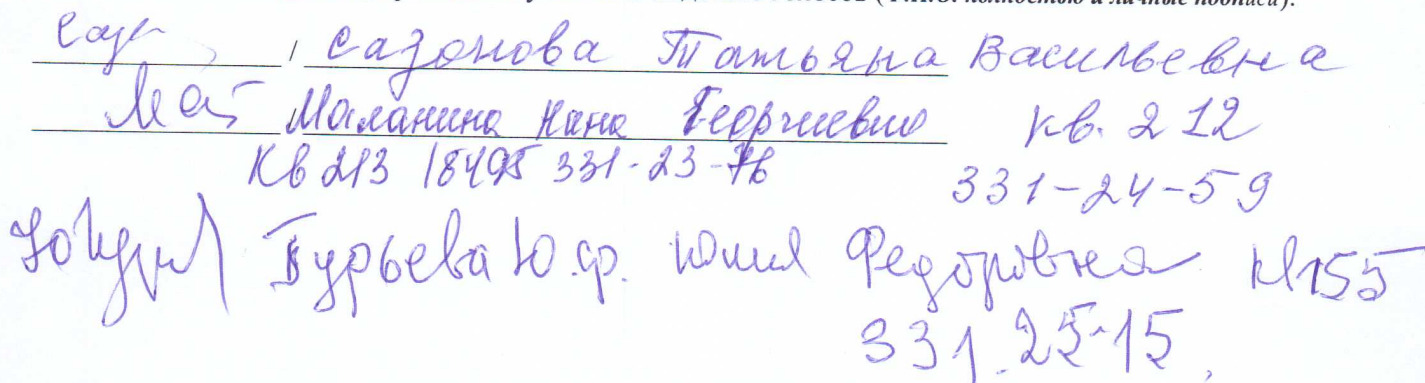 (Ф.И.О. полностью и личные подписи):
Саз / Сазонова Татьяна Васильевна
Мал / Маланина Нана Георгиевна кв. 212
кв 213 18495 331-23-76 331-24-59
Гурьева Ю.Ф. Юлия Федоровна кв 155
331.25-15.